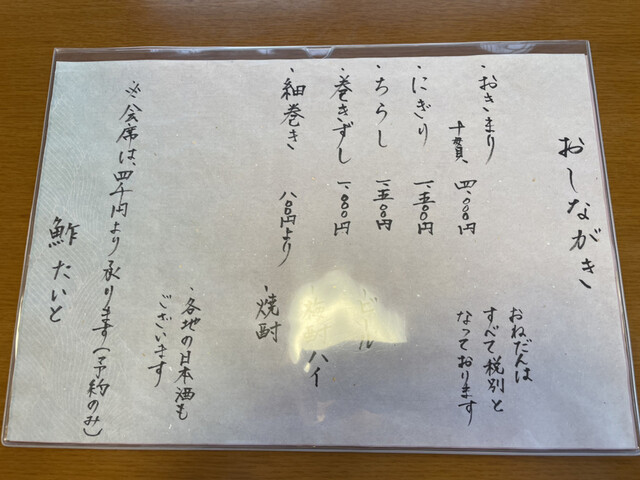 おしながき
・おきまり 十貫 四、〇〇〇円
・にぎり 一、五〇〇円
・ちらし 一、五〇〇円
・巻きずし 一、〇〇〇円
・細巻き 八〇〇円より
おねだんは
すべて税別と
なっております
・ビール
・焼酎ハイ
・焼酎
・各地の日本酒も
ございます
※会席は、四千円より承ります(予約のみ)
鮓 たいと